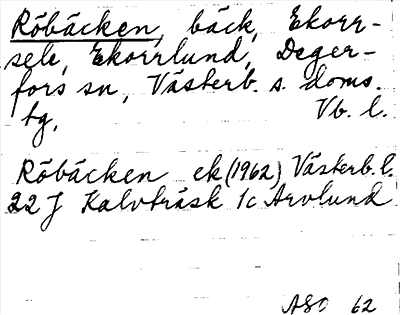 Röbäcken, bäck, Ekorr-
sele, Ekorrlund, Deger-
fors sn, Västerb. s. doms.
tg, Vb. l.
Röbäcken ek (1962) Västerb. l.
22 J Kalvträsk 1c Arvlund
ASO 62